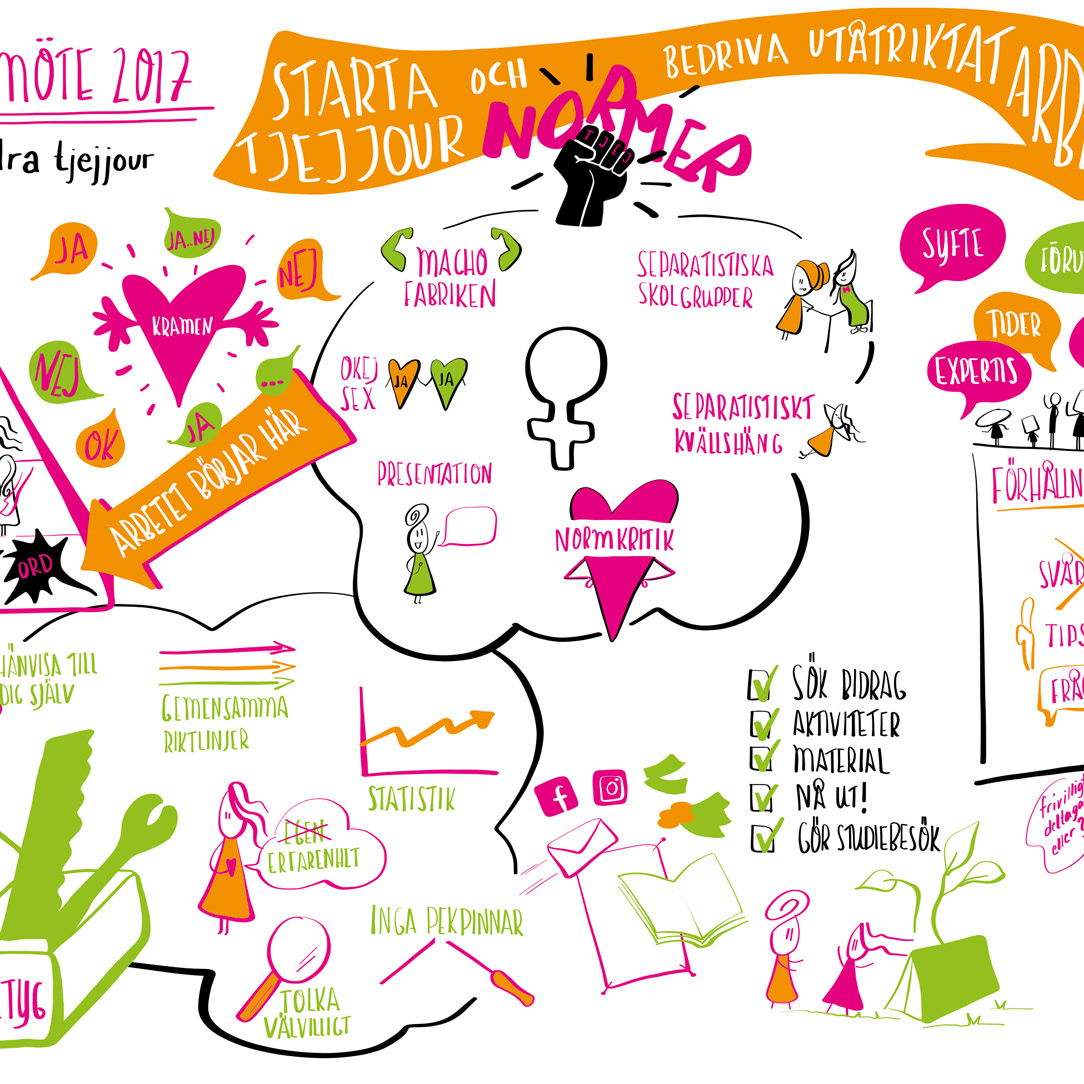 MÖTE 2017
dra tjejjour
STARTA OCH
TJEJJOUR
NORMER
TJEJ
BEDRIVA UTÅTRIKTAT
JA
JA..NEJ
NEJ
KRAMEN
NEJ
...
OK
JA
ARBETET BÖRJAR HÄR
ORD
MACHO
FABRIKEN
SEPARATISTISKA
SKOLGRUPPER
OKEJ
SEX
JA
JA
SEPARATISTISKT
KVÄLLSHÄNG
PRESENTATION
NORMKRITIK
SYFTE
FÖRU
TIDER
EXPERTIS
FÖRHÅLLN
SVÅR
TIPS
FRÅG
HÄNVISA TILL
DIG SJÄLV
GEMENSAMMA
RIKTLINJER
STATISTIK
EGEN
ERFARENHET
INGA PEKPINNAR
TOLKA
VÄLVILLIGT
TYG
f
SÖK BIDRAG
AKTIVITETER
MATERIAL
NÅ UT!
GÖR STUDIEBESÖK
frivillig
deltaga
eller